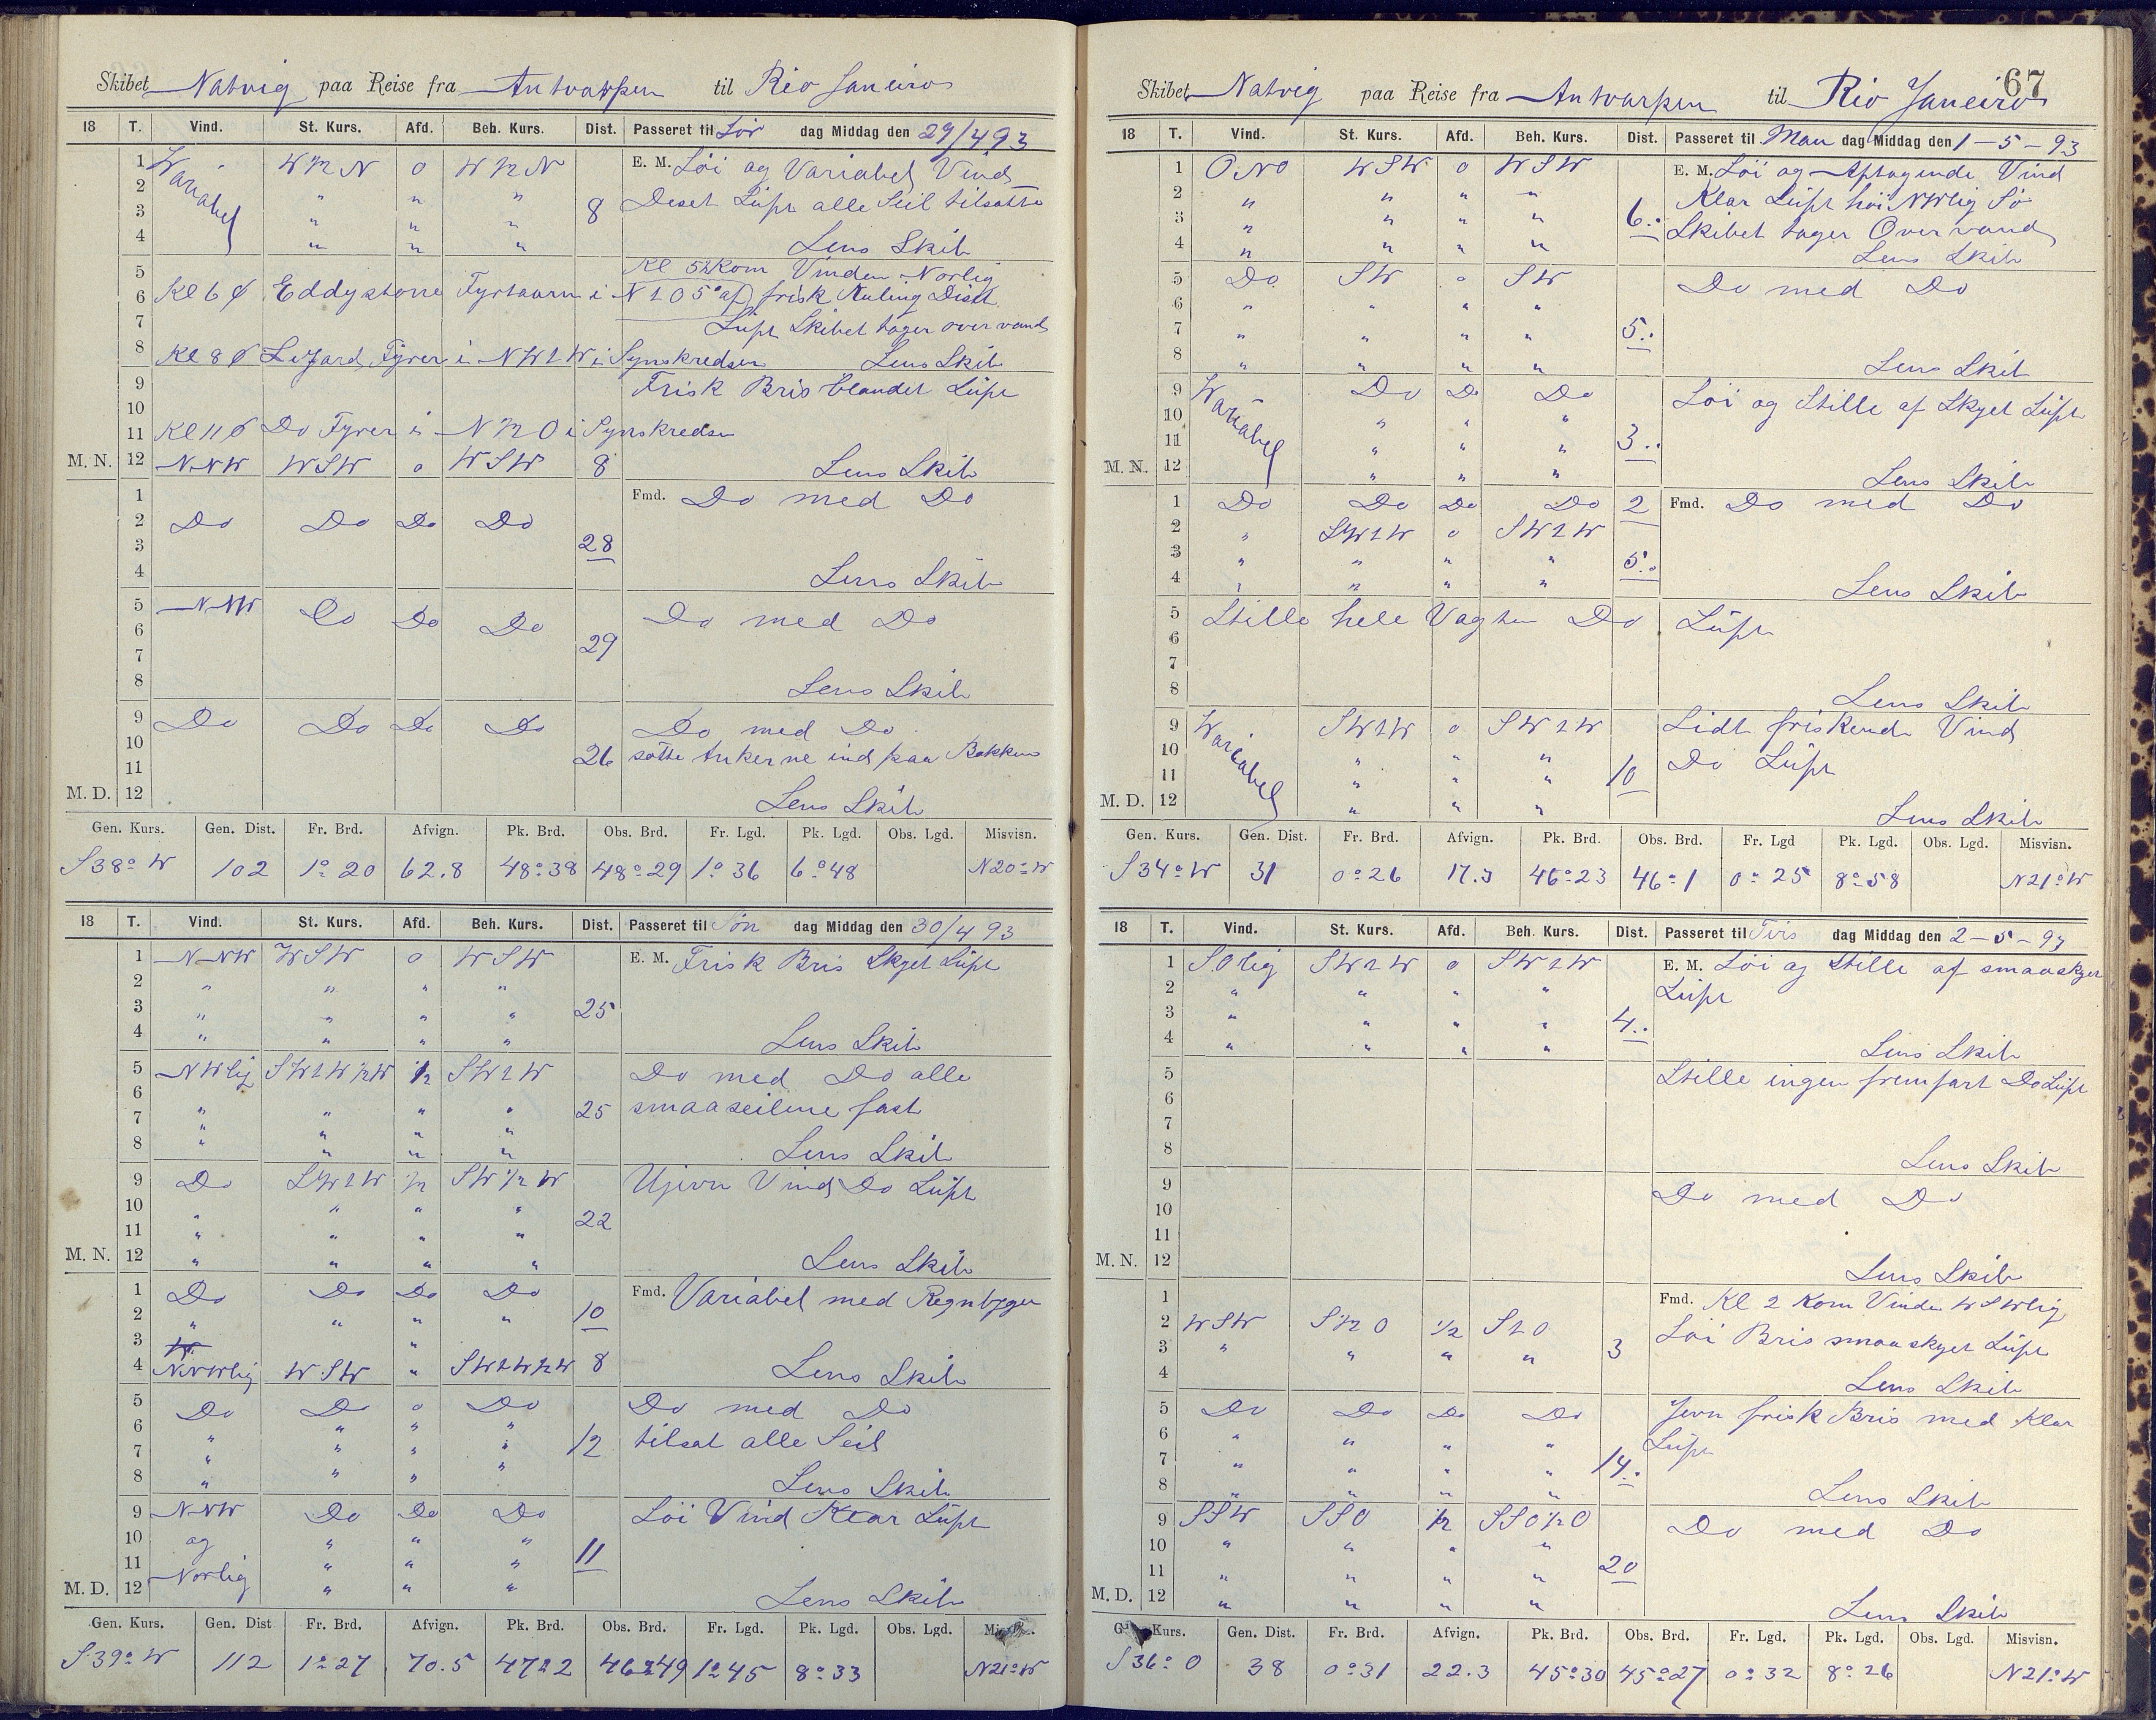 Skibet Natvig paa Reise fra Antwarpen til Rio Janeiro
18 T. Vind. St. Kurs. Afd. Beh. Kurs. Dist. Passeret til Lör dag Middag den 29/4 93
1 Wariabel W½N 0 W½N E. M. Löi og Variabel Vind
2 " " " 8 Deset Lüft alle Seil tilsatte
3 " " "
4 " " " Lens Skib
5 Kl 5½ kom Vinden Norlig
6 Kl 6 Ø Eddystone Fyrtaarn i N 1 O 5° af frisk Kuling Diset
7 Lüft Skibet tager over vand
8 Kl 8 Ø Lizard Fyrer i NW 1 W i Synskredsen Lens Skib
9 Frisk Bris blandet Lüft
10
11 Kl 11 Ø Do Fyrer i N½O i Synskredsen
M. N. 12 NNW WSW 0 WSW 8 Lens Skib
1 Fmd. Do med Do
2 Do Do Do Do
3 28
4 Lens Skib
5 NNW Do Do Do Do med Do
6 29
7
8 Lens Skib
9 Do Do Do Do Do med Do
10 26 satte Ankerne ind paa Bakken
11
M. D. 12 Lens Skib
Gen. Kurs. Gen. Dist. Fr. Brd. Afvign. Pk. Brd. Obs. Brd. Fr. Lgd. Pk. Lgd. Obs. Lgd. Misvisn.
S38°W 102 1°20 62.8 48°38 48°29 1°36 6°48 N20°W
18 T. Vind. St. Kurs. Afd. Beh. Kurs. Dist. Passeret til Sön dag Middag den 30/4 93
1 NNW WSW 0 WSW E. M. Frisk Bris Skyet Lüft
2 " " " "
3 " " " " 25
4 " " " " Lens Skib
5 NWlig SW1W½W ½ SW1W Do med Do alle
6 " " " " 25 smaaseilene fast
7 " " " "
8 " " " " Lens Skib
9 Do SW1W ½ SW½W Ujevn Vind Do Lüft
10 " " " " 22
11 " " " "
M. N. 12 " " " " Lens Skib
1 Do Do Do Do Fmd. Variabel med Regnbyger
2 " " " " 10
3 "
4 NNWlig WSW " SW1W½W 8 Lens Skib
5 Do Do 0 Do Do med Do
6 " " " " 12 tilsat alle Seil
7 " " " "
8 " " " " Lens Skib
9 NNW Do Do Do Löi Vind Klar Lüft
10 og " " "
11 Norlig " " " 11
M. D. 12 " " " Lens Skib
Gen. Kurs. Gen. Dist Fr. Brd. Afvign. Pk. Brd. Obs. Brd. Fr. Lgd. Pk. Lgd. Obs. Lgd.
S39°W 112 1°27 70.5 47°2 46°49 1°45 8°33 N21°W
67
Skibet Natvig paa Reise fra Antwarpen til Rio Janeiro
18 T. Vind. St. Kurs. Afd. Beh. Kurs. Dist. Passeret til Man dag Middag den 1-5-93
1 ONO WSW 0 WSW E. M. Löi og Aftagende Vind
2 " " " " Klar Lüft höi NWlig Sö
3 " " " " 6.. Skibet tager Over vand
4 " " " " Lens Skib
5 Do SW 0 SW Do med Do
6 " " " "
7 " " " " 5..
8 " " " " Lens Skib
9 Wariabel Do Do Do Löi og Stille af Skyet Lüft
10 " " "
11 " " " 3..
M. N. 12 " " " Lens Skib
1 Do Do Do Do 2 Fmd. Do med Do
2 " SW1W 0 SW1W
3 " " " " 5..
4 " " " " Lens Skib
5 Stille hele Vagten Do Lüft
6
7
8 Lens Skib
9 Wariabel SW1W 0 SW1W Lidt friskende Vind
10 " " " Do Lüft
11 " " " 10
M. D. 12 " " " Lens Skib
Gen. Kurs. Gen. Dist. Fr. Brd. Afvign. Pk. Brd. Obs. Brd. Fr. Lgd Pk. Lgd. Obs. Lgd. Misvisn.
S34°W 31 0°26 17.3 46°23 46°1 0°25 8°58 N21°W
18 T. Vind. St. Kurs. Afd. Beh. Kurs. Dist. Passeret til Tirs dag Middag den 2-5-93
1 SOlig SW1W 0 SW1W E. M. Löi og Stille af smaaskyet
2 " " " " Lüft
3 " " " " 4..
4 " " " " Lens Skib
5 Stille ingen fremfart Do Lüft
6
7
8 Lens Skib
9 Do med Do
10
11
M. N. 12 Lens Skib
1 Fmd. Kl 2 kom Vinden WSWlig
2 WSW S½O ½ S1O Löi Bris smaaskyet Lüft
3 " " " " 3
4 Lens Skib
5 Do Do Do Do Jevn frisk Bris med Klar
6 " " " " Lüft
7 " " " " 14..
8 " " " " Lens Skib
9 SSW SSO ½ SSO½O Do med Do
10 " " " "
11 " " " " 20
M. D. 12 " " " " Lens Skib
Kurs. Gen. Dist. Fr. Brd. Afvign. Pk. Brd. Obs. Brd. Fr. Lgd. Pk. Lgd. Obs. Lgd. Misvisn.
S36°O 38 0°31 22.3 45°30 45°27 0°32 8°26 N21°W